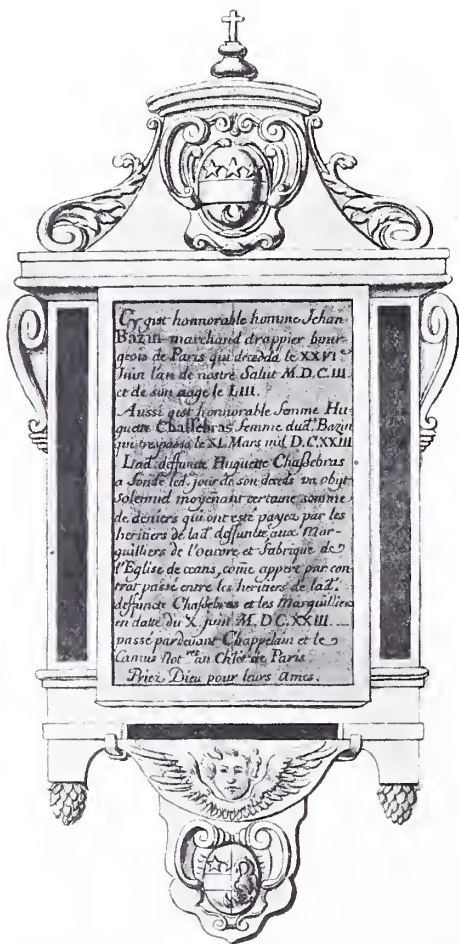 Cy gist honnorable homme Jehan
Bazin marchand drappier bour-
geois de Paris qui decedda le XXVI
Juin l'an de nostre Salut M.D.C.III
et de son aage le LIII.
Aussi gist honnorable femme Hu-
guette Chaßebras femme dud.t Bazin
qui trespassa le XI. Mars mil D.C.XXIII
Lad. deffuncte Huguette Chaßebras
a fondé led. jour de son deceds un obyt
solemnel moyenant certaine somme
de deniers qui ont esté payez par les
heritiers de lad. deffunte aux Mar-
guilliers de l'oeuvre et fabrique de
l'Eglise de ceans, come appert par con-
trat passé entre les heritiers de lad.
deffuncte Chaßebras et les Marguilliers
en datte du X. juin M. DC.XXIII.
passé pardevant Chappelain et le
Camus Not.res au Ch.let de Paris.
Priez Dieu pour leurs ames.